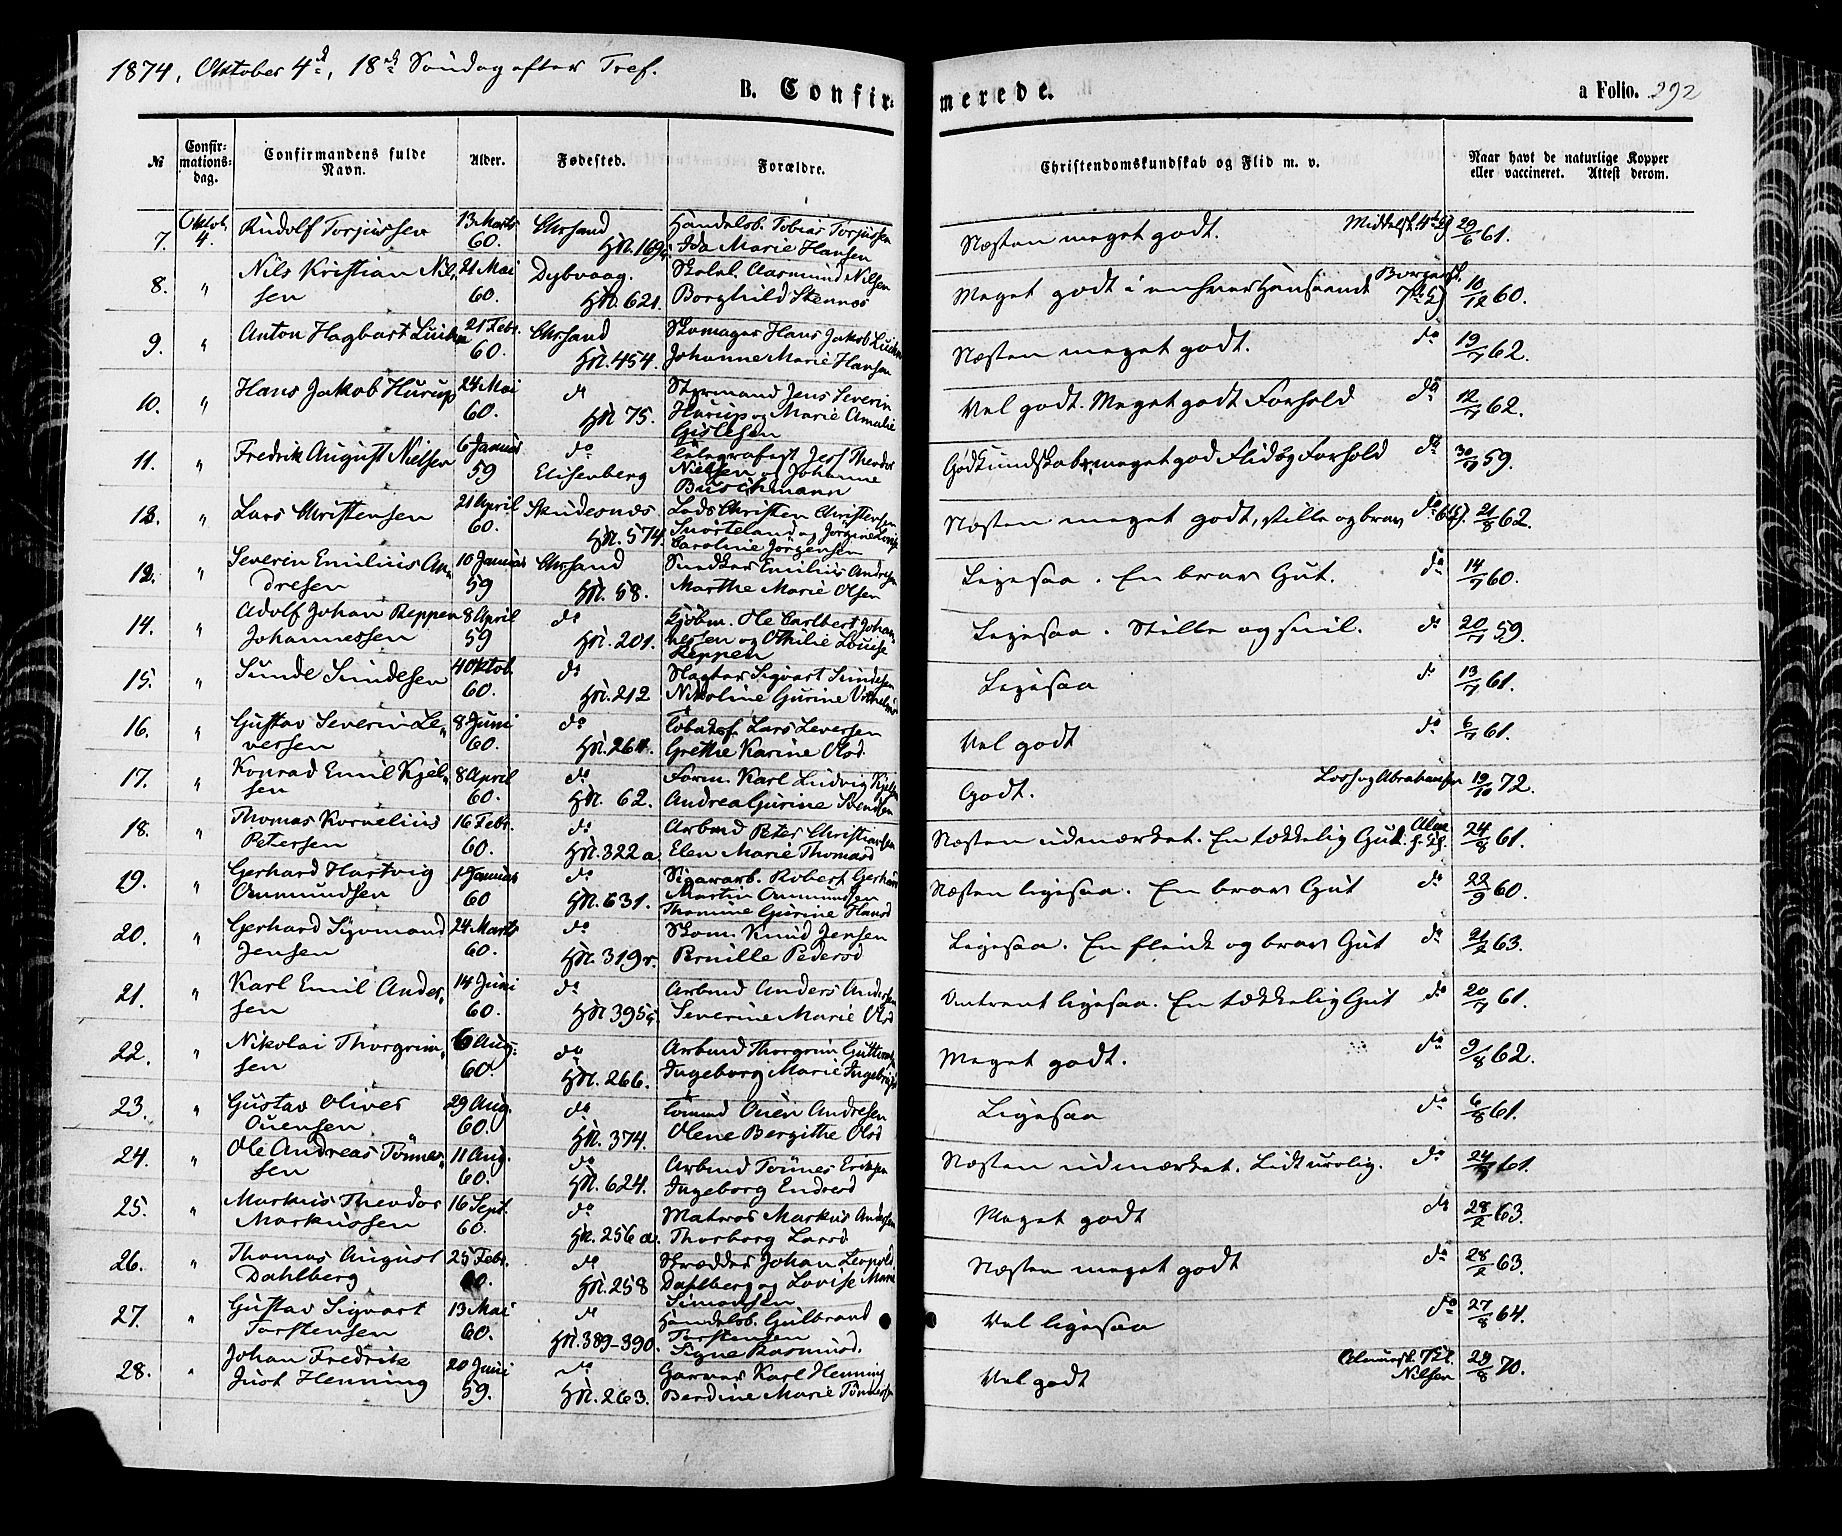 1874, Oktober 4de, 18de Søndag efter Tref.
B. Confirmerede.
a Folio. 292
№
Confirmationsdag.
Confirmandens fulde Navn.
Alder.
Fødested.
Forældre.
Christendomskundskab og Flid m. v.
Naar havt de naturlige Kopper eller vaccineret. Attest derom.
7. Oktob. 4. Rudolf Torjussen 13 Marts 60. Chrsand HN. 169 Handelsb. Tobias Torjussen Ida Marie Hansen Næsten meget godt. Middelsk. 29/6 61.
8. " Nils Kristian Nilsen 21 Mai 60. Dybvaag. HN. 621. Skolel. Aasmund Nilsen Borghild Stennes Meget godt i enhver Henseende Borgersk. 7 10/12 60.
9. " Anton Hagbart 21 Febr. 60. Chrsand HN. 454. Skomager Hans Jakob Johanne Marie Hansen Næsten meget godt. do 19/7 62.
10. " Hans Jakob Hurup 24 Mai 60. do HN 75. Styrmand Jens Severin Hurup og Marie Amalie Gislesen Vel godt. Meget godt Forhold do 12/7 62.
11. " Fredrik August Nielsen 6 Januar 59 do Elisenberg Telegrafist Theodor Nielsen og Johanne Buschmann God Kundskab, meget god Flid og Forhold do 30/7 59.
13. " Lars Christensen 21 April 60. Skudesnæs HN. 574. Lods Christen Christensen Snørteland og Jørgine Caroline Jørgensen Næsten meget godt, stille og brav do 21/8 62.
12. " Severin Emilius Andresen 10 Januar 59 Chrsand HN. 58. Snedker Emilius Andresen Marthe Marie Olsen Ligesaa. En brav Gut. do 14/7 60.
14. " Adolf Johan Reppen Johannessen 8 April 59 do HN. 201. Ole Carlbert Johannessen og Othilie Louise Reppen Ligesaa. Stille og snil. do 20/7 59.
15. " Sunde Sundesen 4 Oktob. 60. do HN. 212 Slagter Sigvart Sundesen Nikoline Gurine Ligesaa do 13/7 61.
16. " Gustav Severin Leversen 8 Juni 60. do HN. 261. Tobaksf. Lars Leversen Grethe Karine Olsd Vel godt do 6/7 61.
17. " Konrad Emil Kjelsen 8 April 60. do HN. 62. Form. Karl Ludvig Andrea Gurine Svendsen Godt. Losh. og Abrahamsen 19/10 72.
18. " Thomas Kornelius Petersen 16 Febr. 60. do HN. 322 a Arbmd Peter Christiansen Elen Marie Thomasd Næsten udmærket. En tækkelig Gut. 24/8 61.
19. " Gerhard Hartvig Ommundsen 1 Januar 60 do HN. 631. Sigararb. Robert Gerhard Martin Ommundsen Thomine Gurine Hansd Næsten ligesaa. En brav Gut do 22/9 60.
20. " Gerhard Sigvmand Jensen 24 Marts 60. do HN. 319 v. Skom. Knud Jensen Pernille Pedersd Ligesaa. En fleink og brav Gut do 21/2 63.
21. " Karl Emil Andersen 14 Juni 60. do HN 395 Arbmd Anders Andersen Severine Marie Olsd Omtrent ligesaa. En tækkelig Gut do 20/7 61.
22. " Nikolai Thorgrimsen 6 Aug. 60. do HN. 266. Arbmd Thorgrim Ingeborg Marie Meget godt. do 9/8 62.
23. " Gustav Oliver Ouensen 29 Aug. 60. do HN. 374. Ouen Andresen Olene Bergithe Olsd Ligesaa do 6/8 61.
24. " Ole Andreas Tönnessen 11 Aug. 60. do HN. 624. Arbmd Tönnes Eriksen Ingeborg Endresd Næsten udmærket. Lidt urolig. do 24/7 61.
25. " Markus Theodor Markussen 16 Sept. 60. do HN. 256 a. Matros Markus Andersen Thorborg Larsd Meget godt do 28/2 63.
26. " Thomas August Dahlberg 25 Febr. 60. do HN. 258 Skrædder Johan Leopold Dahlberg og Lovise Marie Simonsen Næsten meget godt do 28/2 63.
27. " Gustav Sigvart Torstensen 13 Mai 60. do HN. 389-390. Handelsb. Gulbrand Torstensen Signe Rasmusd. Vel ligesaa do 27/8 64.
28. " Johan Fredrik Just Henning 20 Juni 59. do HN. 263. Garver Karl Henning Berdine Marie Tönnesen Vel godt Almuesk. Nilsen 29/8 70.